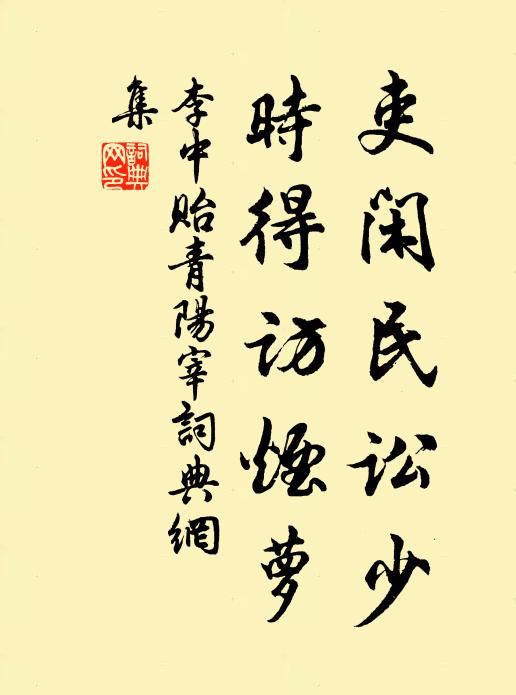 吏閑民訟少
時得訪煙蘿
李中貽青陽宰詞典網
集
詞典
网印